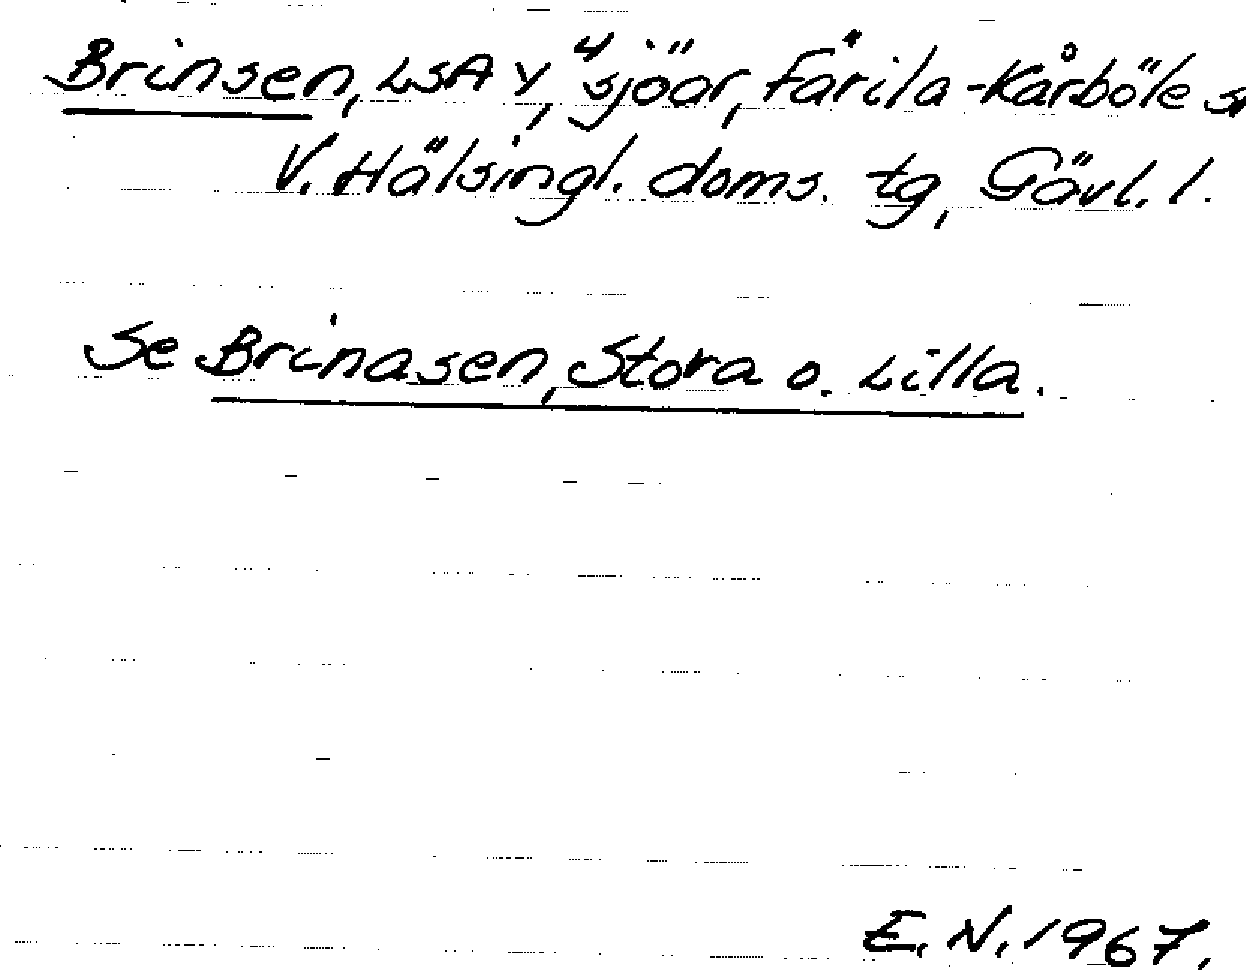 Brinsen, LSA Y, 4 sjöar, Färila-Kårböle sn
V. Hälsingl. doms. tg, Gävl. l.
Se Brinasen, Stora o. Lilla.
E. N. 1967.